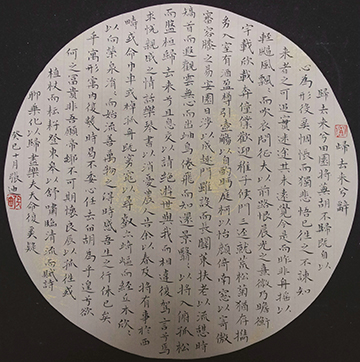 歸去來兮辭
歸去來兮田園將蕪胡不歸既自以
心為形役奚惆悵而獨悲悟已往之不諫知
來者之可追實迷途其未遠覺今是而昨非舟搖以
輕颺風飄飄而吹衣問征夫以前路恨晨光之熹微乃瞻衡
宇載欣載奔僮僕歡迎稚子候門三徑就荒松菊猶存携
幼入室有酒盈樽引壺觴以自酌眄庭柯以怡顏倚南窗以寄傲
審容膝之易安園日涉以成趣門雖設而長關扶老以流憩時
矯首而遐觀雲無心而出岫鳥倦飛而知還景翳翳以將入撫孤松
而盤桓歸去來兮請息交以絕遊世與我而相違復駕言兮焉
求悅親戚之情話樂琴書以消憂農人告余以春及將有事於西
疇或命巾車或棹孤舟既窈窕以尋壑亦崎嶇而經丘木欣欣
以向榮泉涓涓而始流善萬物之得時感吾生之行休已矣
乎寓形宇內復幾時曷不委心任去留胡為乎遑遑兮欲
何之富貴非吾願帝鄉不可期懷良辰以孤往或
植杖而耘耔登東皋以舒嘯臨清流而賦詩
聊乘化以歸盡樂夫天命復奚疑
癸巳一月張迪